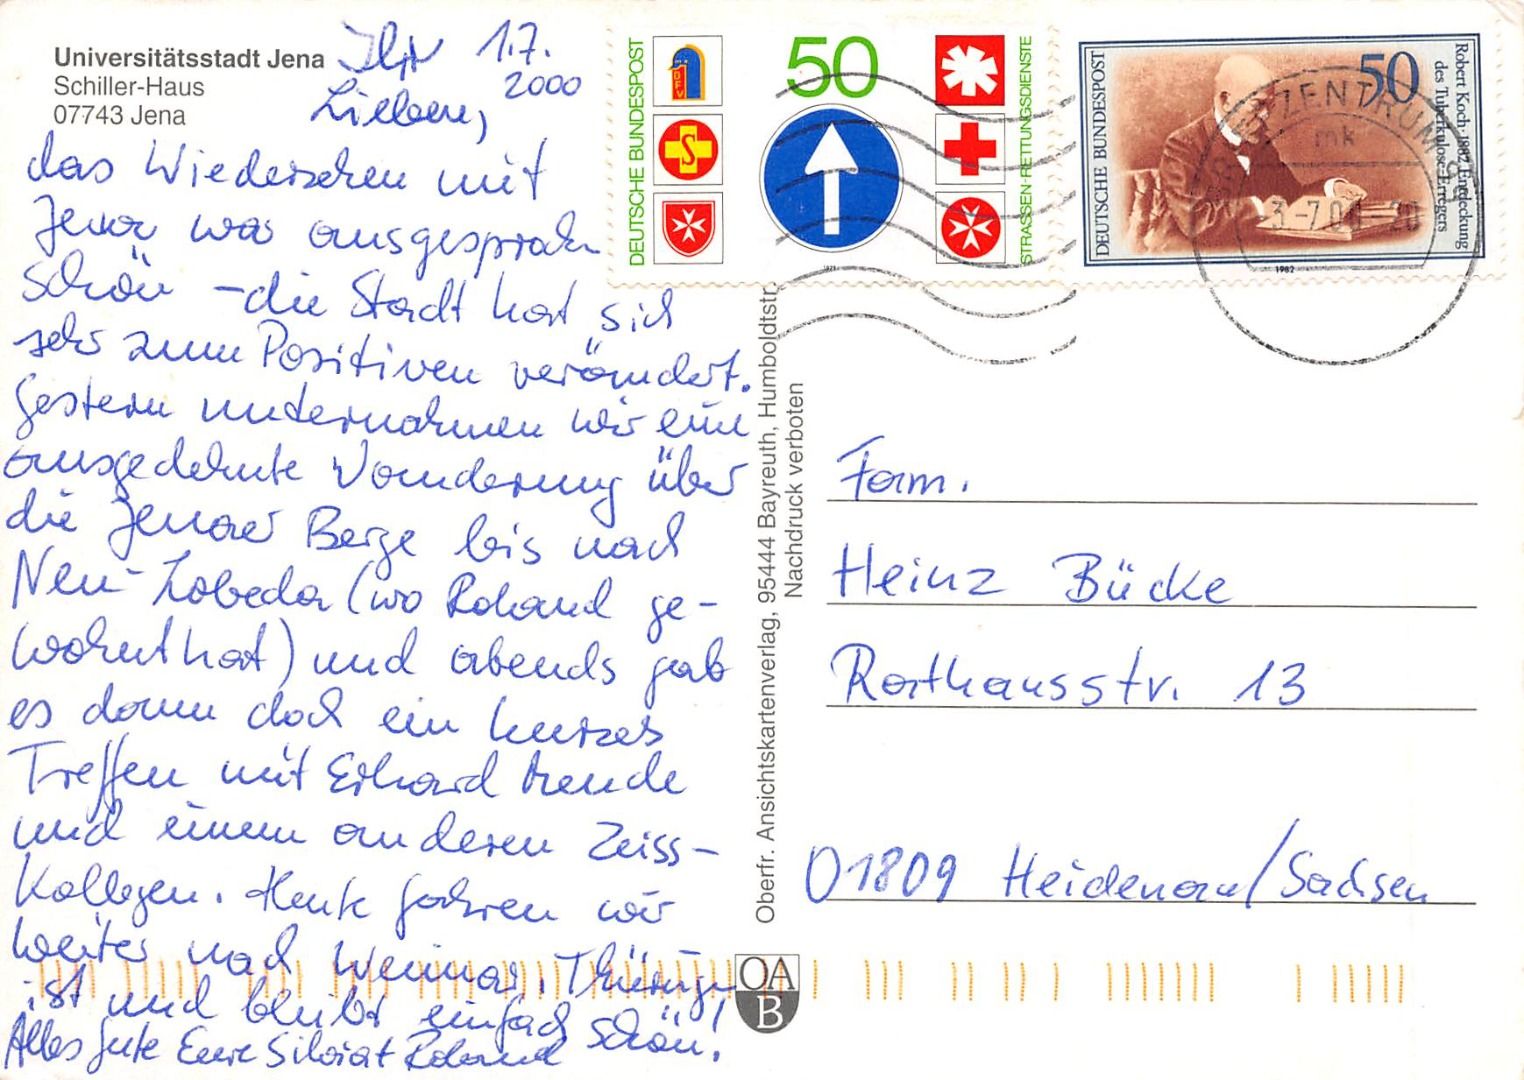 Universitätsstadt Jena
Schiller-Haus
07743 Jena
Ihr 1.7.
Lieben, 2000
das Wiedersehen mit
Jena war ausgesprochen
schön – die Stadt hat sich
sehr zum Positiven verändert.
Gestern unternahmen wir eine
ausgedehnte Wanderung über
die Jenaer Berge bis nach
Neu-Lobeda (wo Roland ge-
wohnt hat) und abends gab
es dann doch ein kurzes
Treffen mit Erhard
und einem anderen Zeiss-
Kollegen. Heute fahren wir
weiter nach Weimar. Thüringen
ist und bleibt einfach schön!
Alles Gute Eure Silvia + Roland
DEUTSCHE BUNDESPOST
50
DFV
S
STRASSEN-RETTUNGSDIENSTE
1971
DEUTSCHE BUNDESPOST
50
Robert Koch · 1882 Entdeckung
des Tuberkulose-Erregers
1982
BRIEFZENTRUM
mk
-3.-7.00-20
Oberfr. Ansichtskartenverlag, 95444 Bayreuth, Humboldtstr.
Nachdruck verboten
OA
B
Fam.
Heinz Bücke
Rathausstr. 13
01809 Heidenau/Sachsen